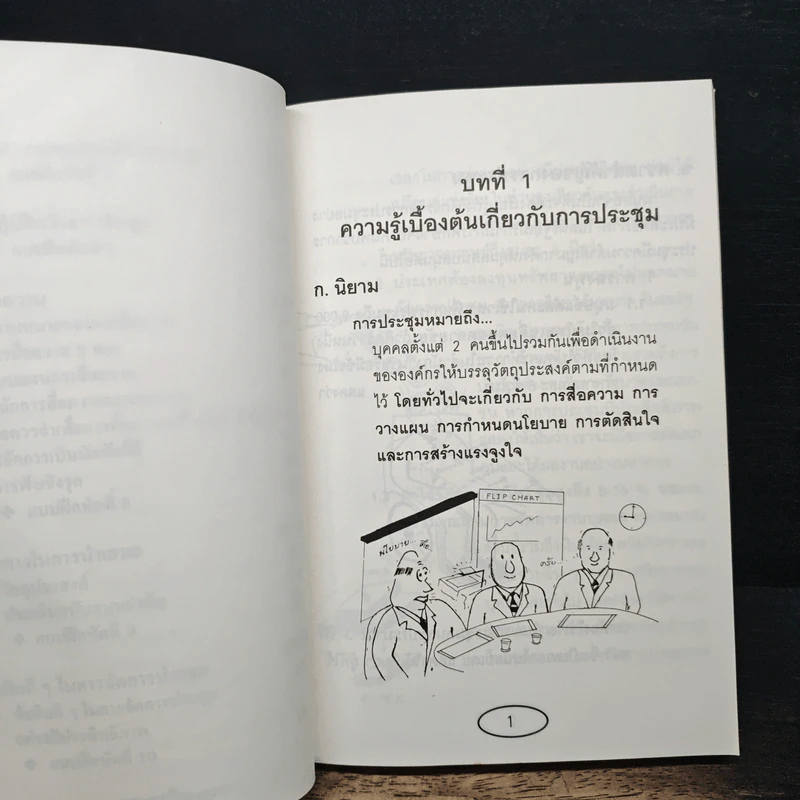 บทที่ 1
ความรู้เบื้องต้นเกี่ยวกับการประชุม
ก. นิยาม
การประชุมหมายถึง...
บุคคลตั้งแต่ 2 คนขึ้นไปรวมกันเพื่อดำเนินงาน
ขององค์กรให้บรรลุวัตถุประสงค์ตามที่กำหนด
ไว้ โดยทั่วไปจะเกี่ยวกับ การสื่อความ การ
วางแผน การกำหนดนโยบาย การตัดสินใจ
และการสร้างแรงจูงใจ
FLIP CHART
นโยบาย... คือ...
ครับ...
1